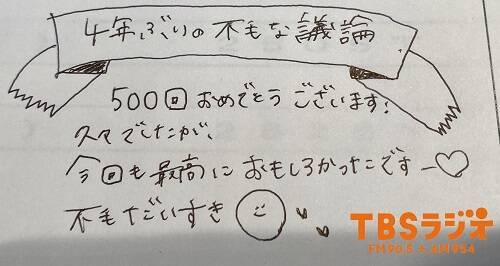 4年ぶりの不毛な議論
500回おめでとうございます!
久々でしたが、
今回も最高におもしろかったですー♡
不毛だいすき
TBSラジオ
FM90.5+AM954